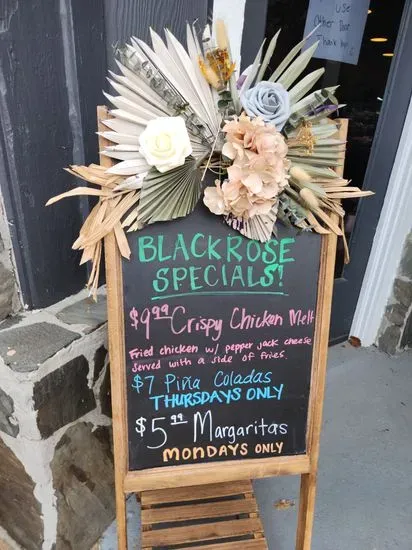 Use
Other Door
Thank You
BLACK ROSE
SPECIALS!
$9.99 Crispy Chicken Melt
Fried chicken w/ pepper jack cheese
served with a side of fries.
$7 Piña Coladas
THURSDAYS ONLY
$5.99 Margaritas
MONDAYS ONLY